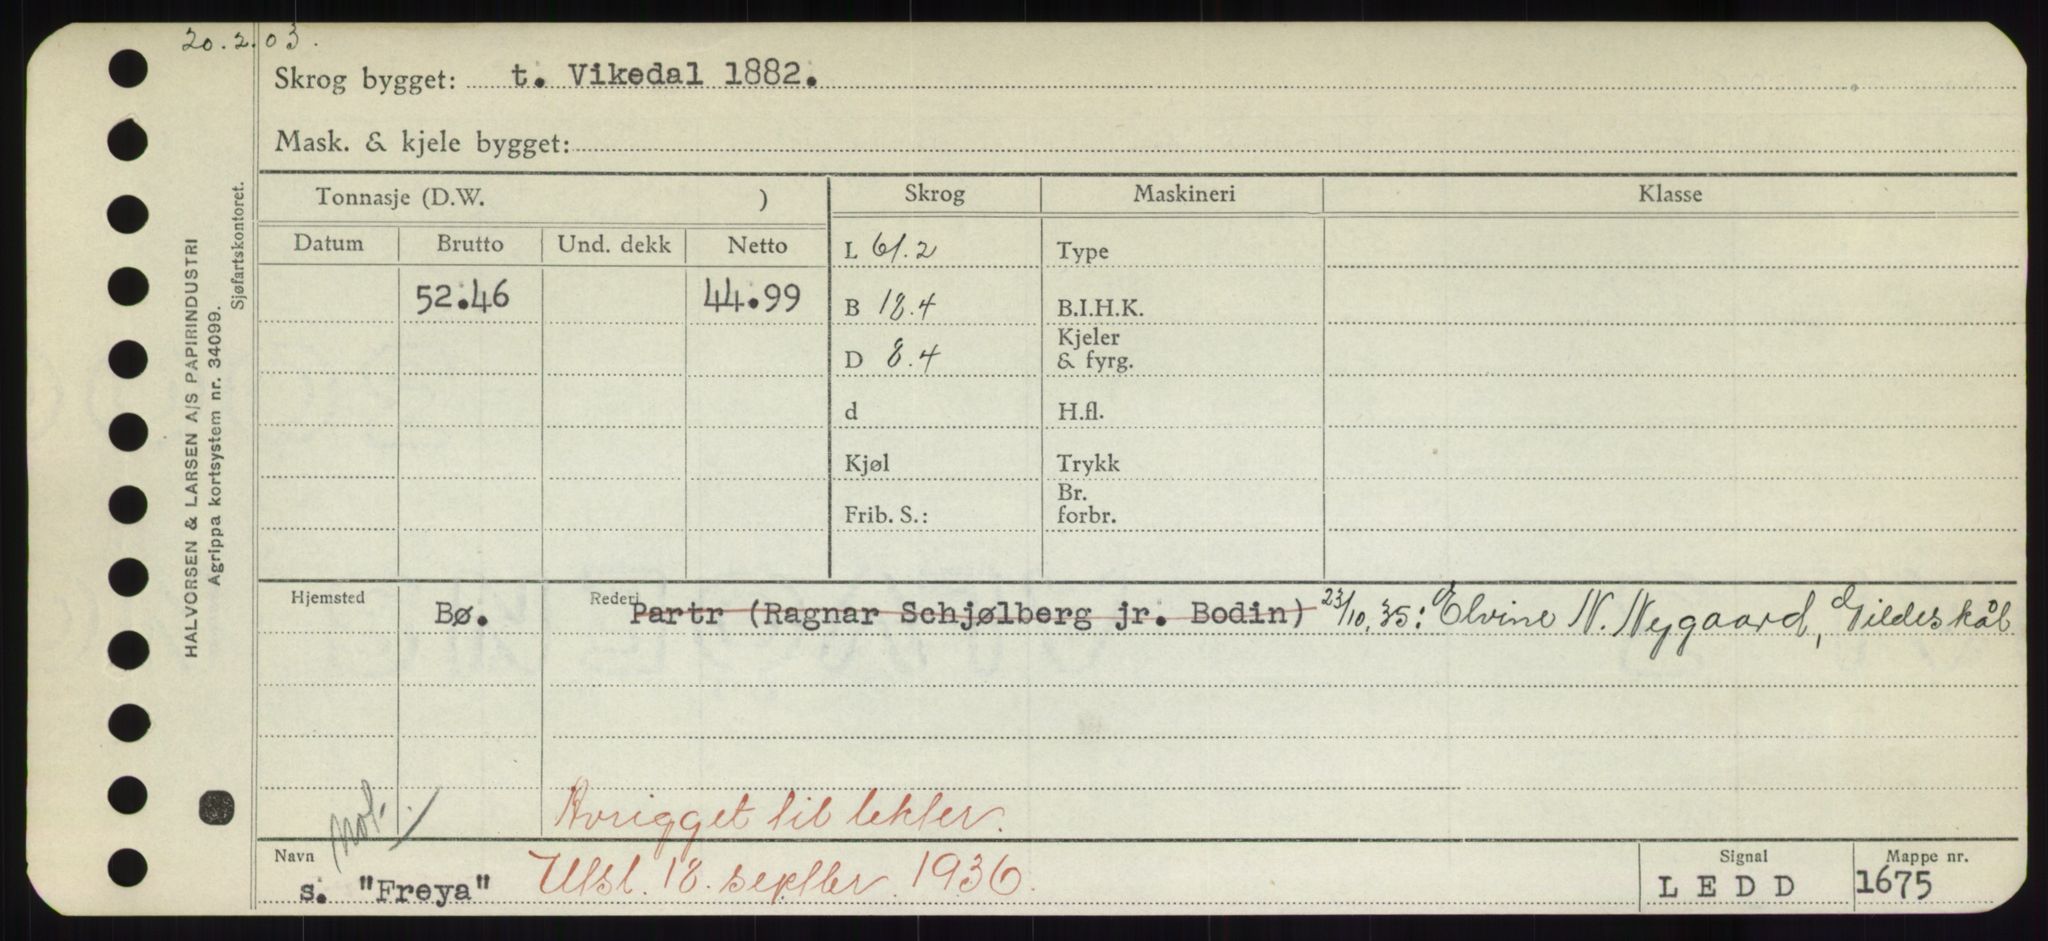 20.2.03.
Skrog bygget: t. Vikedal 1882.
Mask. & kjele bygget:
HALVORSEN & LARSEN A/S PAPIRINDUSTRI
Agrippa kortsystem nr. 34099.
Sjøfartskontoret.
Tonnasje (D.W. ) Skrog Maskineri Klasse
Datum Brutto Und. dekk Netto
L 61.2 Type
52.46 44.99 B 18.4 B.I.H.K.
D 8.4 Kjeler & fyrg.
d H.fl.
Kjøl Trykk
Frib. S.: Br. forbr.
Hjemsted Bø. Rederi Partr (Ragnar Schjølberg jr. Bodin) 23/10.35: Elvine N. Nygaard, Gildeskål
not.
Avrigget til lekter.
Navn s. "Frøya" Utsl. 18. septber 1936.
Signal LEDD
Mappe nr. 1675